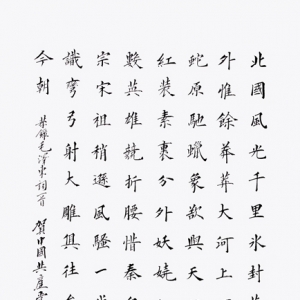 北國風光千里氷封
外惟餘莽莽大河上
蛇原馳蠟象欲與天
紅裝素裹分外妖嬈
數英雄競折腰惜秦
宗宋祖稍遜風騷一
識彎弓射大雕俱往
今朝
恭錄毛澤東詞一首 賀中國共產